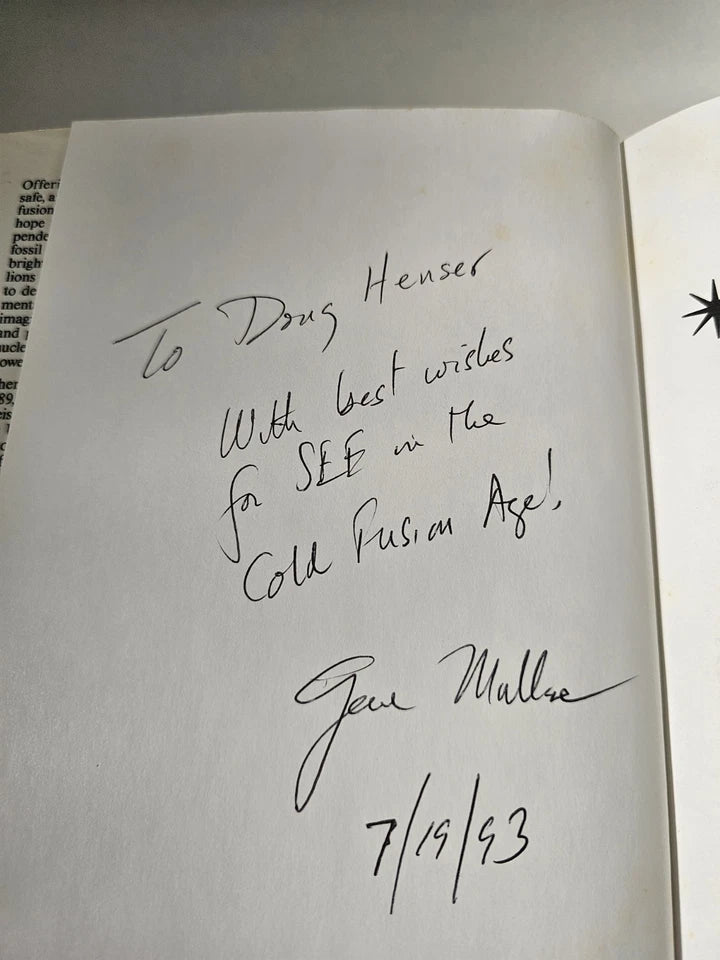 Offeri
safe, a
fusion
hope
pende
fossil
bright
lions
to de
ment
imag
and
nucle
owe
her
89,
eis
To Doug Henser
With best wishes
for SEE in the
Cold Fusion Age!
Gene Mallove
7/19/93